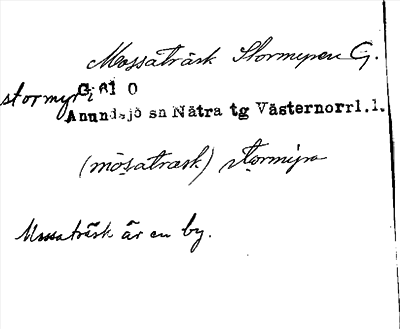 Mossaträsk Stormyren G.
stormyr Gi 81 0
Anundsjö sn Nätra tg Västernorrl.l.
(mòsatrask) stormyra
Mossaträsk är en by.